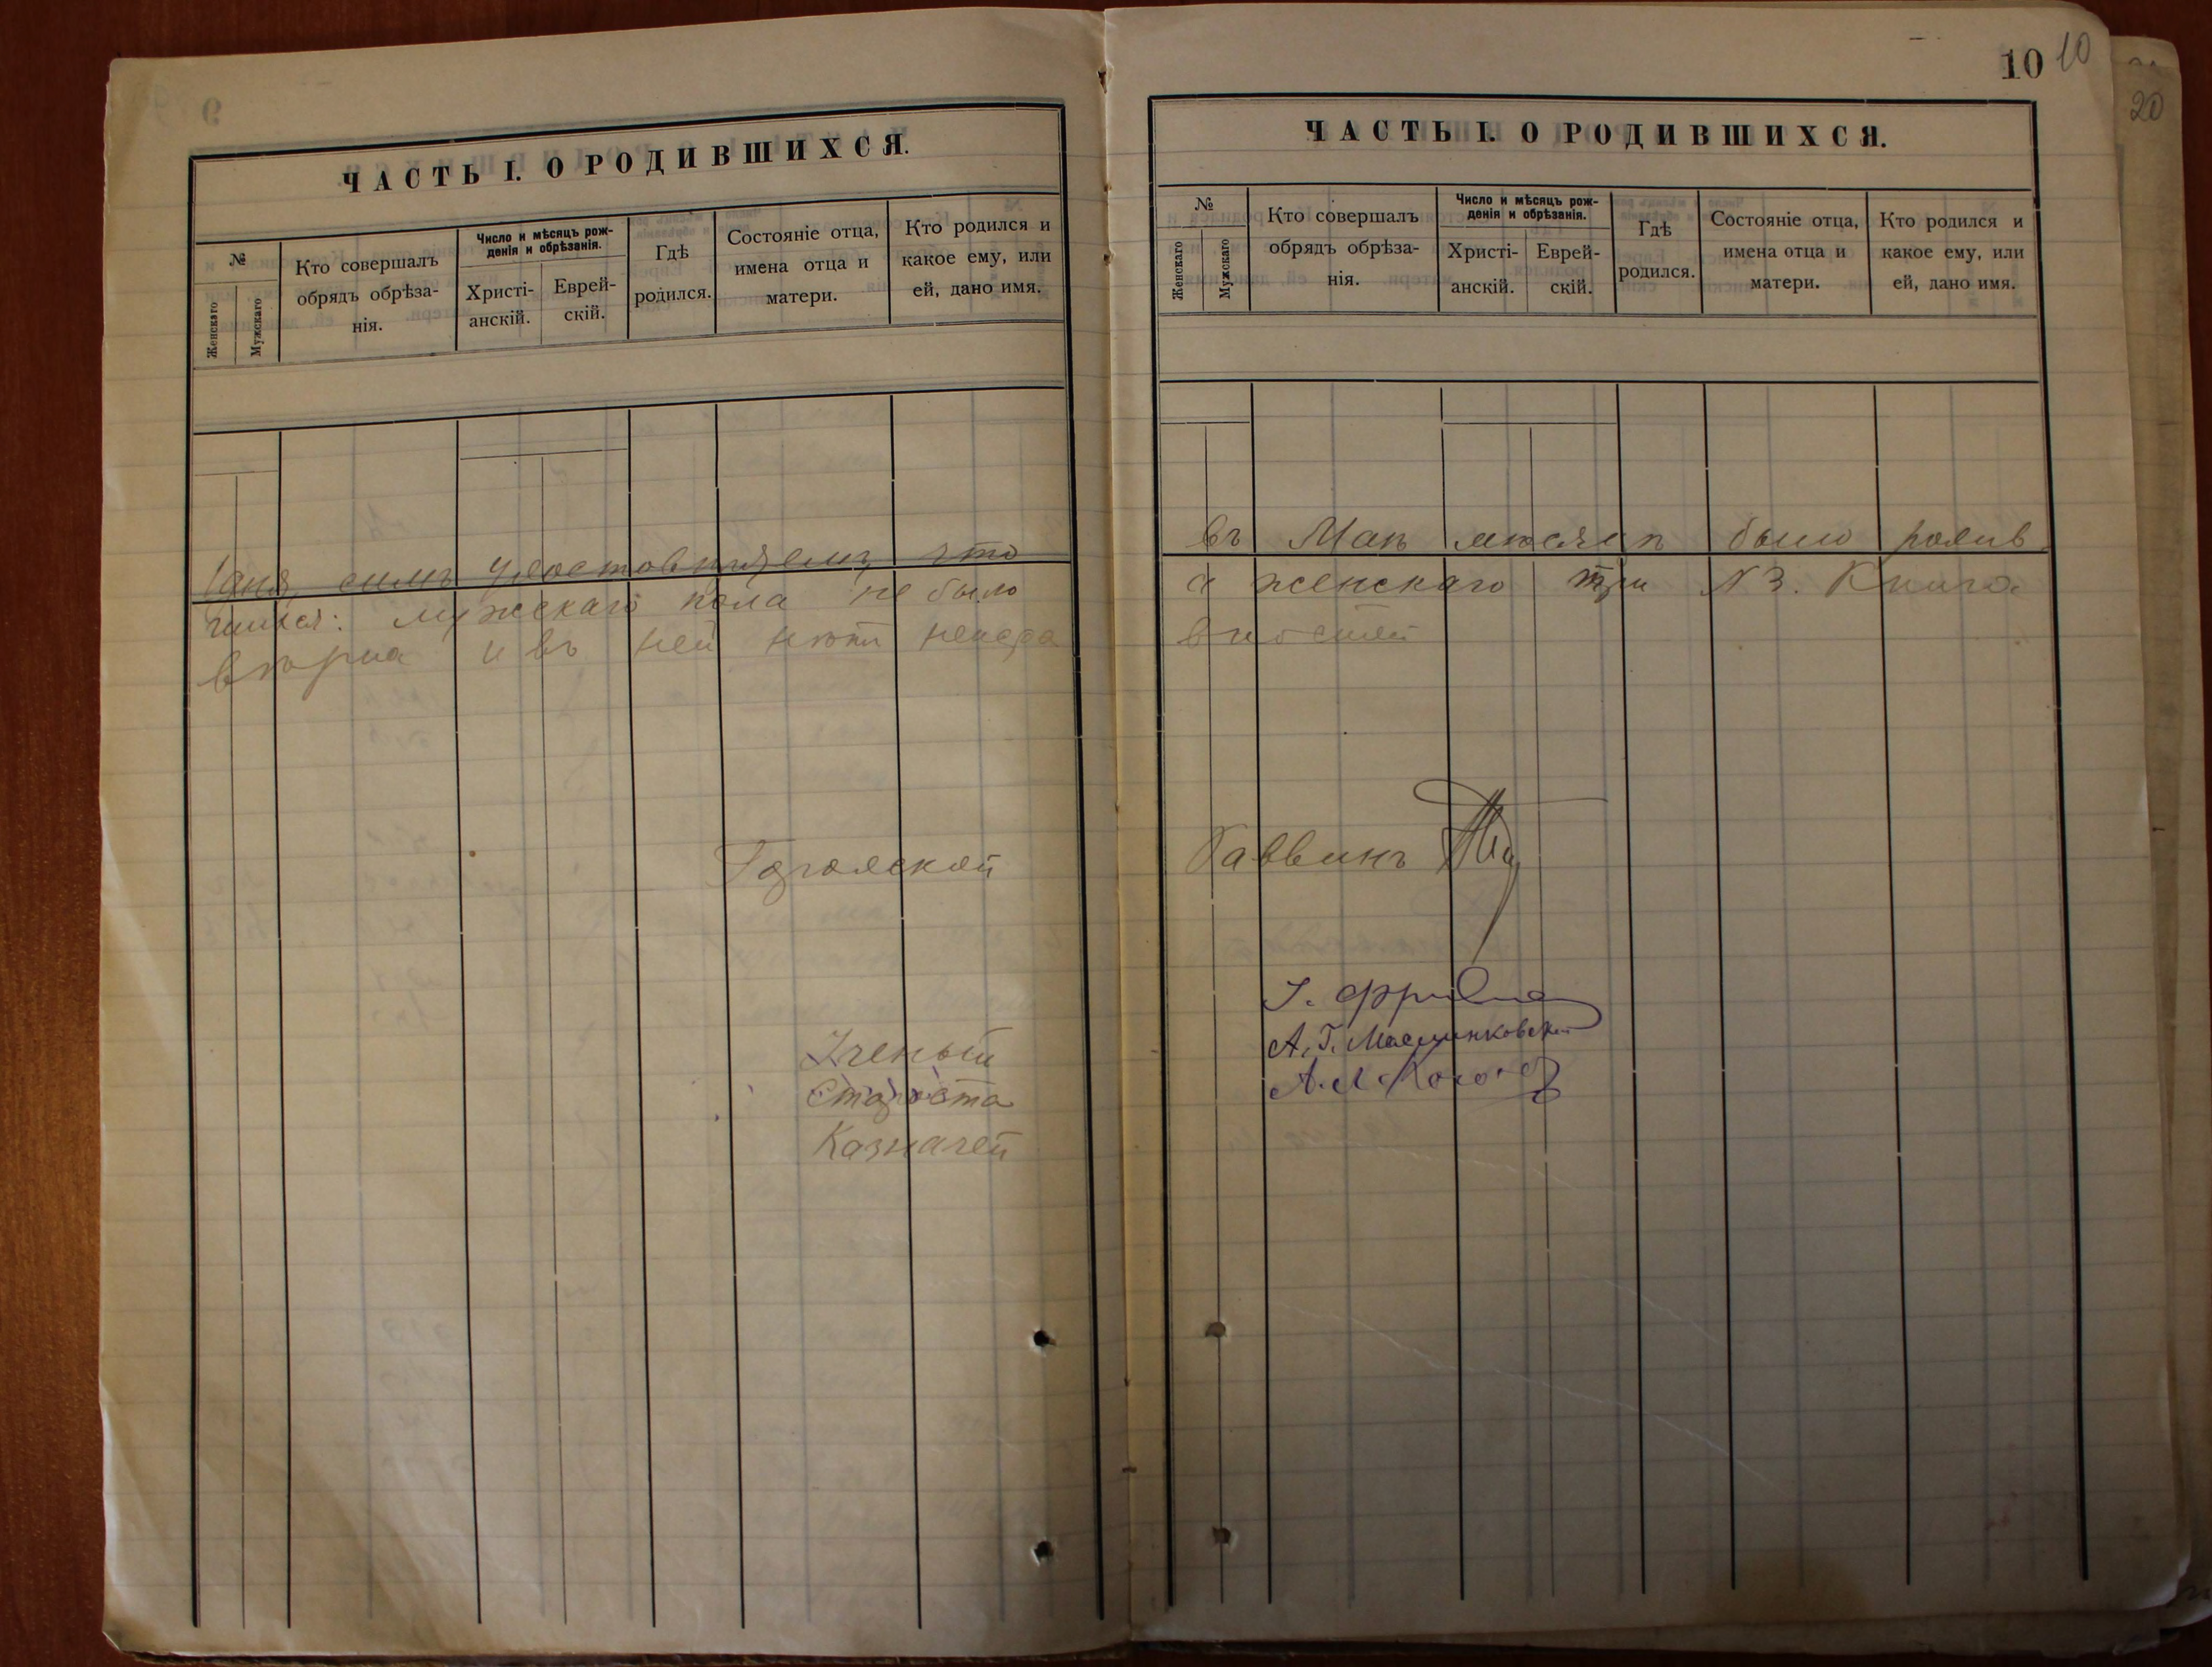 ЧАСТЬ I. О РОДИВШИХСЯ.
№
Женскаго
Мужскаго
Кто совершалъ
обрядъ обрѣза-
нія.
Число и мѣсяцъ рож-
денія и обрѣзанія.
Христі-
анскій.
Еврей-
скій.
Гдѣ
родился.
Состояніе отца,
имена отца и
матери.
Кто родился и
какое ему, или
ей, дано имя.
симъ удостовѣряемъ, что
шихся: мужскаго пола не было
вѣрна и въ ней нѣтъ
Ученый
Староста
Казначей
10 10
20
ЧАСТЬ I. О РОДИВШИХСЯ.
№
Женскаго
Мужскаго
Кто совершалъ
обрядъ обрѣза-
нія.
Число и мѣсяцъ рож-
денія и обрѣзанія.
Христі-
анскій.
Еврей-
скій.
Гдѣ
родился.
Состояніе отца,
имена отца и
матери.
Кто родился и
какое ему, или
ей, дано имя.
въ Маѣ мѣсяцѣ было родив
а женскаго три №3. Книга
Раввинъ
А. Г.